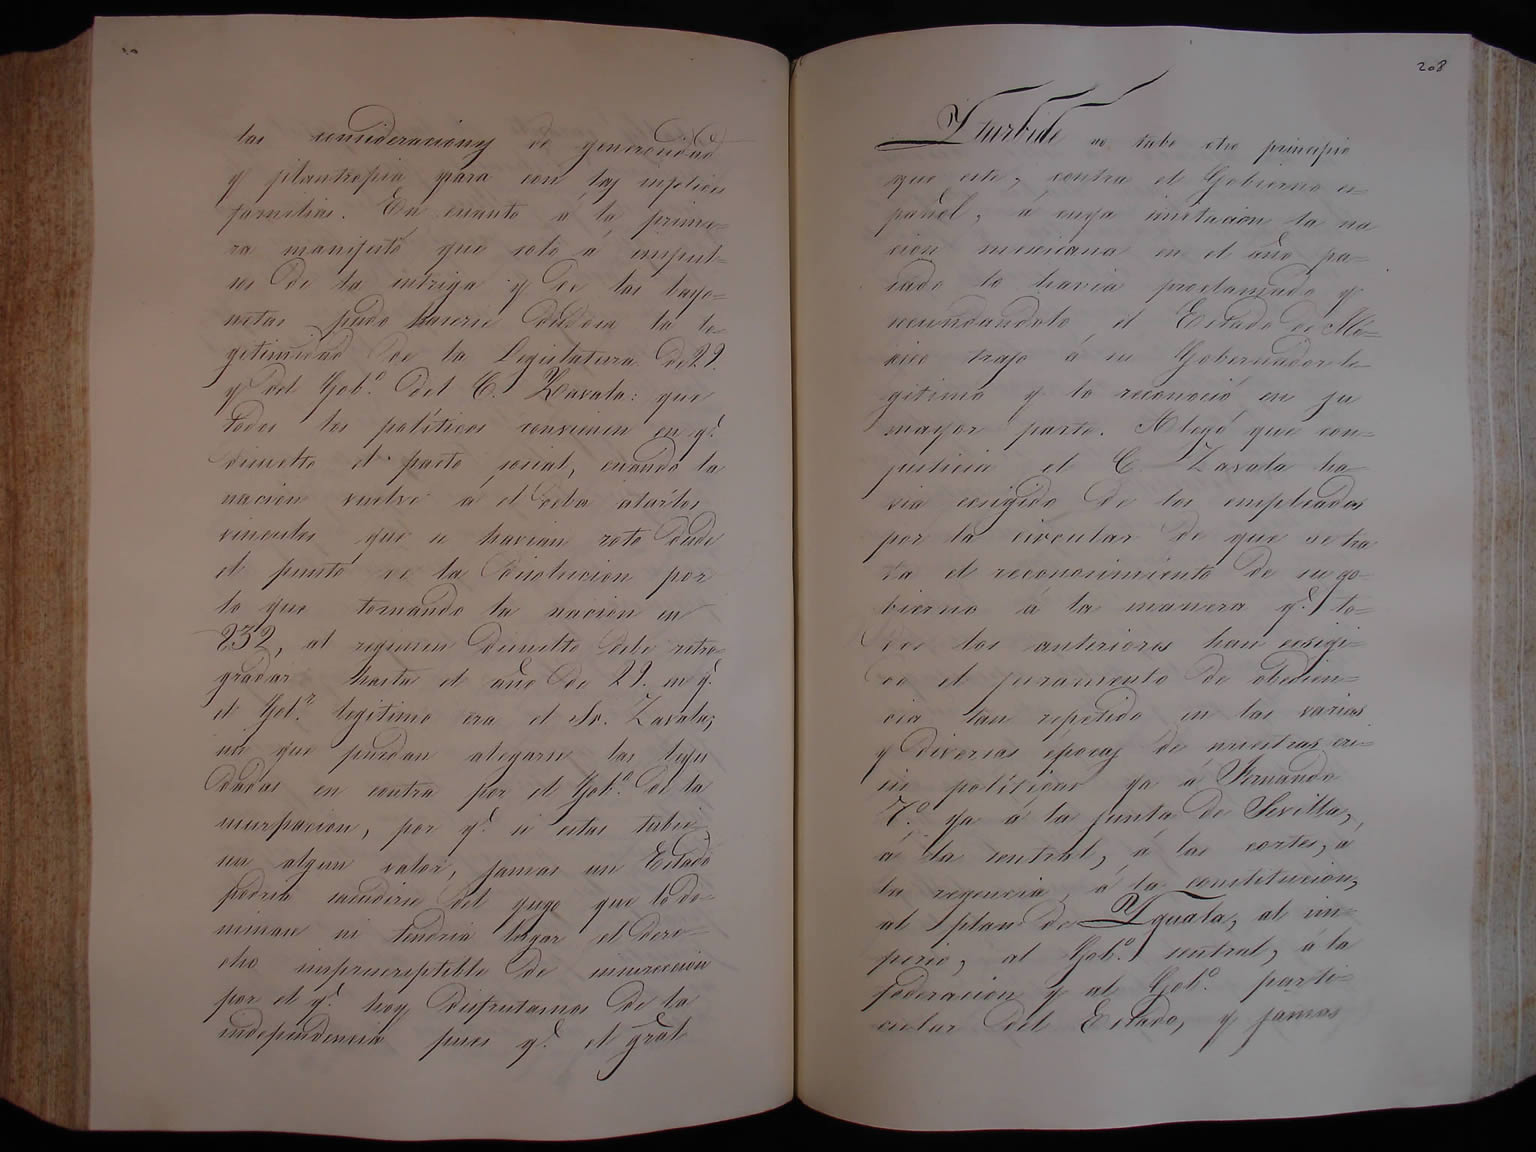 las consideraciones de generosidad
y filantropia para con las infelices
familias. En cuanto á la prime-
ra manifestó que solo á impul-
sos de la intriga y de las bayo-
netas pudo hacerse dudosa la le-
gitimidad de la Legislatura de 29.
y del Gob.º del C. Zavala: que
todos los políticos convienen en q.e
disuelto el pacto social, cuando la
nacion vuelve á él deba atar los
vinculos que se havian roto desde
el punto de la disolucion por
lo que tornando la nacion en
832, al regimen disuelto debe retro-
gradar hasta el año de 29. en q.e
el Gob.r legitimo era el Sr. Zavala;
sin que puedan alegarse las legu
dadas en contra por el Gob.º de la
usurpacion, por q.e si estas tubie-
sen algun valor, jamas un Estado
podria sacudirse del yugo que lo do-
minan ni tendria lugar el dere-
cho imprescriptible de insurreccion
por el q.e hoy disfrutamos de la
independencia pues q.e el gral
208
Yturbide no tubo otro principio
que este, contra el Gobierno es-
pañol, á cuya imitacion la na
cion mexicana en el año pa-
sado lo havia proclamado y
secundandolo el Estado de Mé-
xico trajo á su Gobernador le-
gitimo y lo reconoció en su
mayor parte. Alegó que con-
justicia el C. Zavala ha-
via exigido de los empleados
por la circular de que se tra
ta el reconocimiento de su go-
bierno á la manera q.e to-
dos los anteriores han exigi-
do el juramento de obedien-
cia tan repetido en las varias
y diversas épocas de nuestras cri-
sis políticas ya á Fernando
7.º ya á la junta de Sevilla,
á la central, á las cortes, á
la regencia, á la constitucion,
al plan de Yguala, al im-
perio, al Gob.º central, á la
federacion y al Gob.º parti-
cular del Estado, y jamas